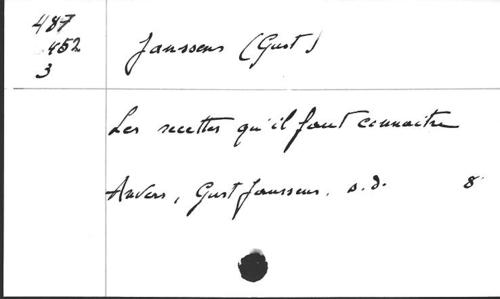 487
452
3
Janssens (Gust)
Les recettes qu'il faut connaitre
Anvers, Gust Janssens, s.d. 8°